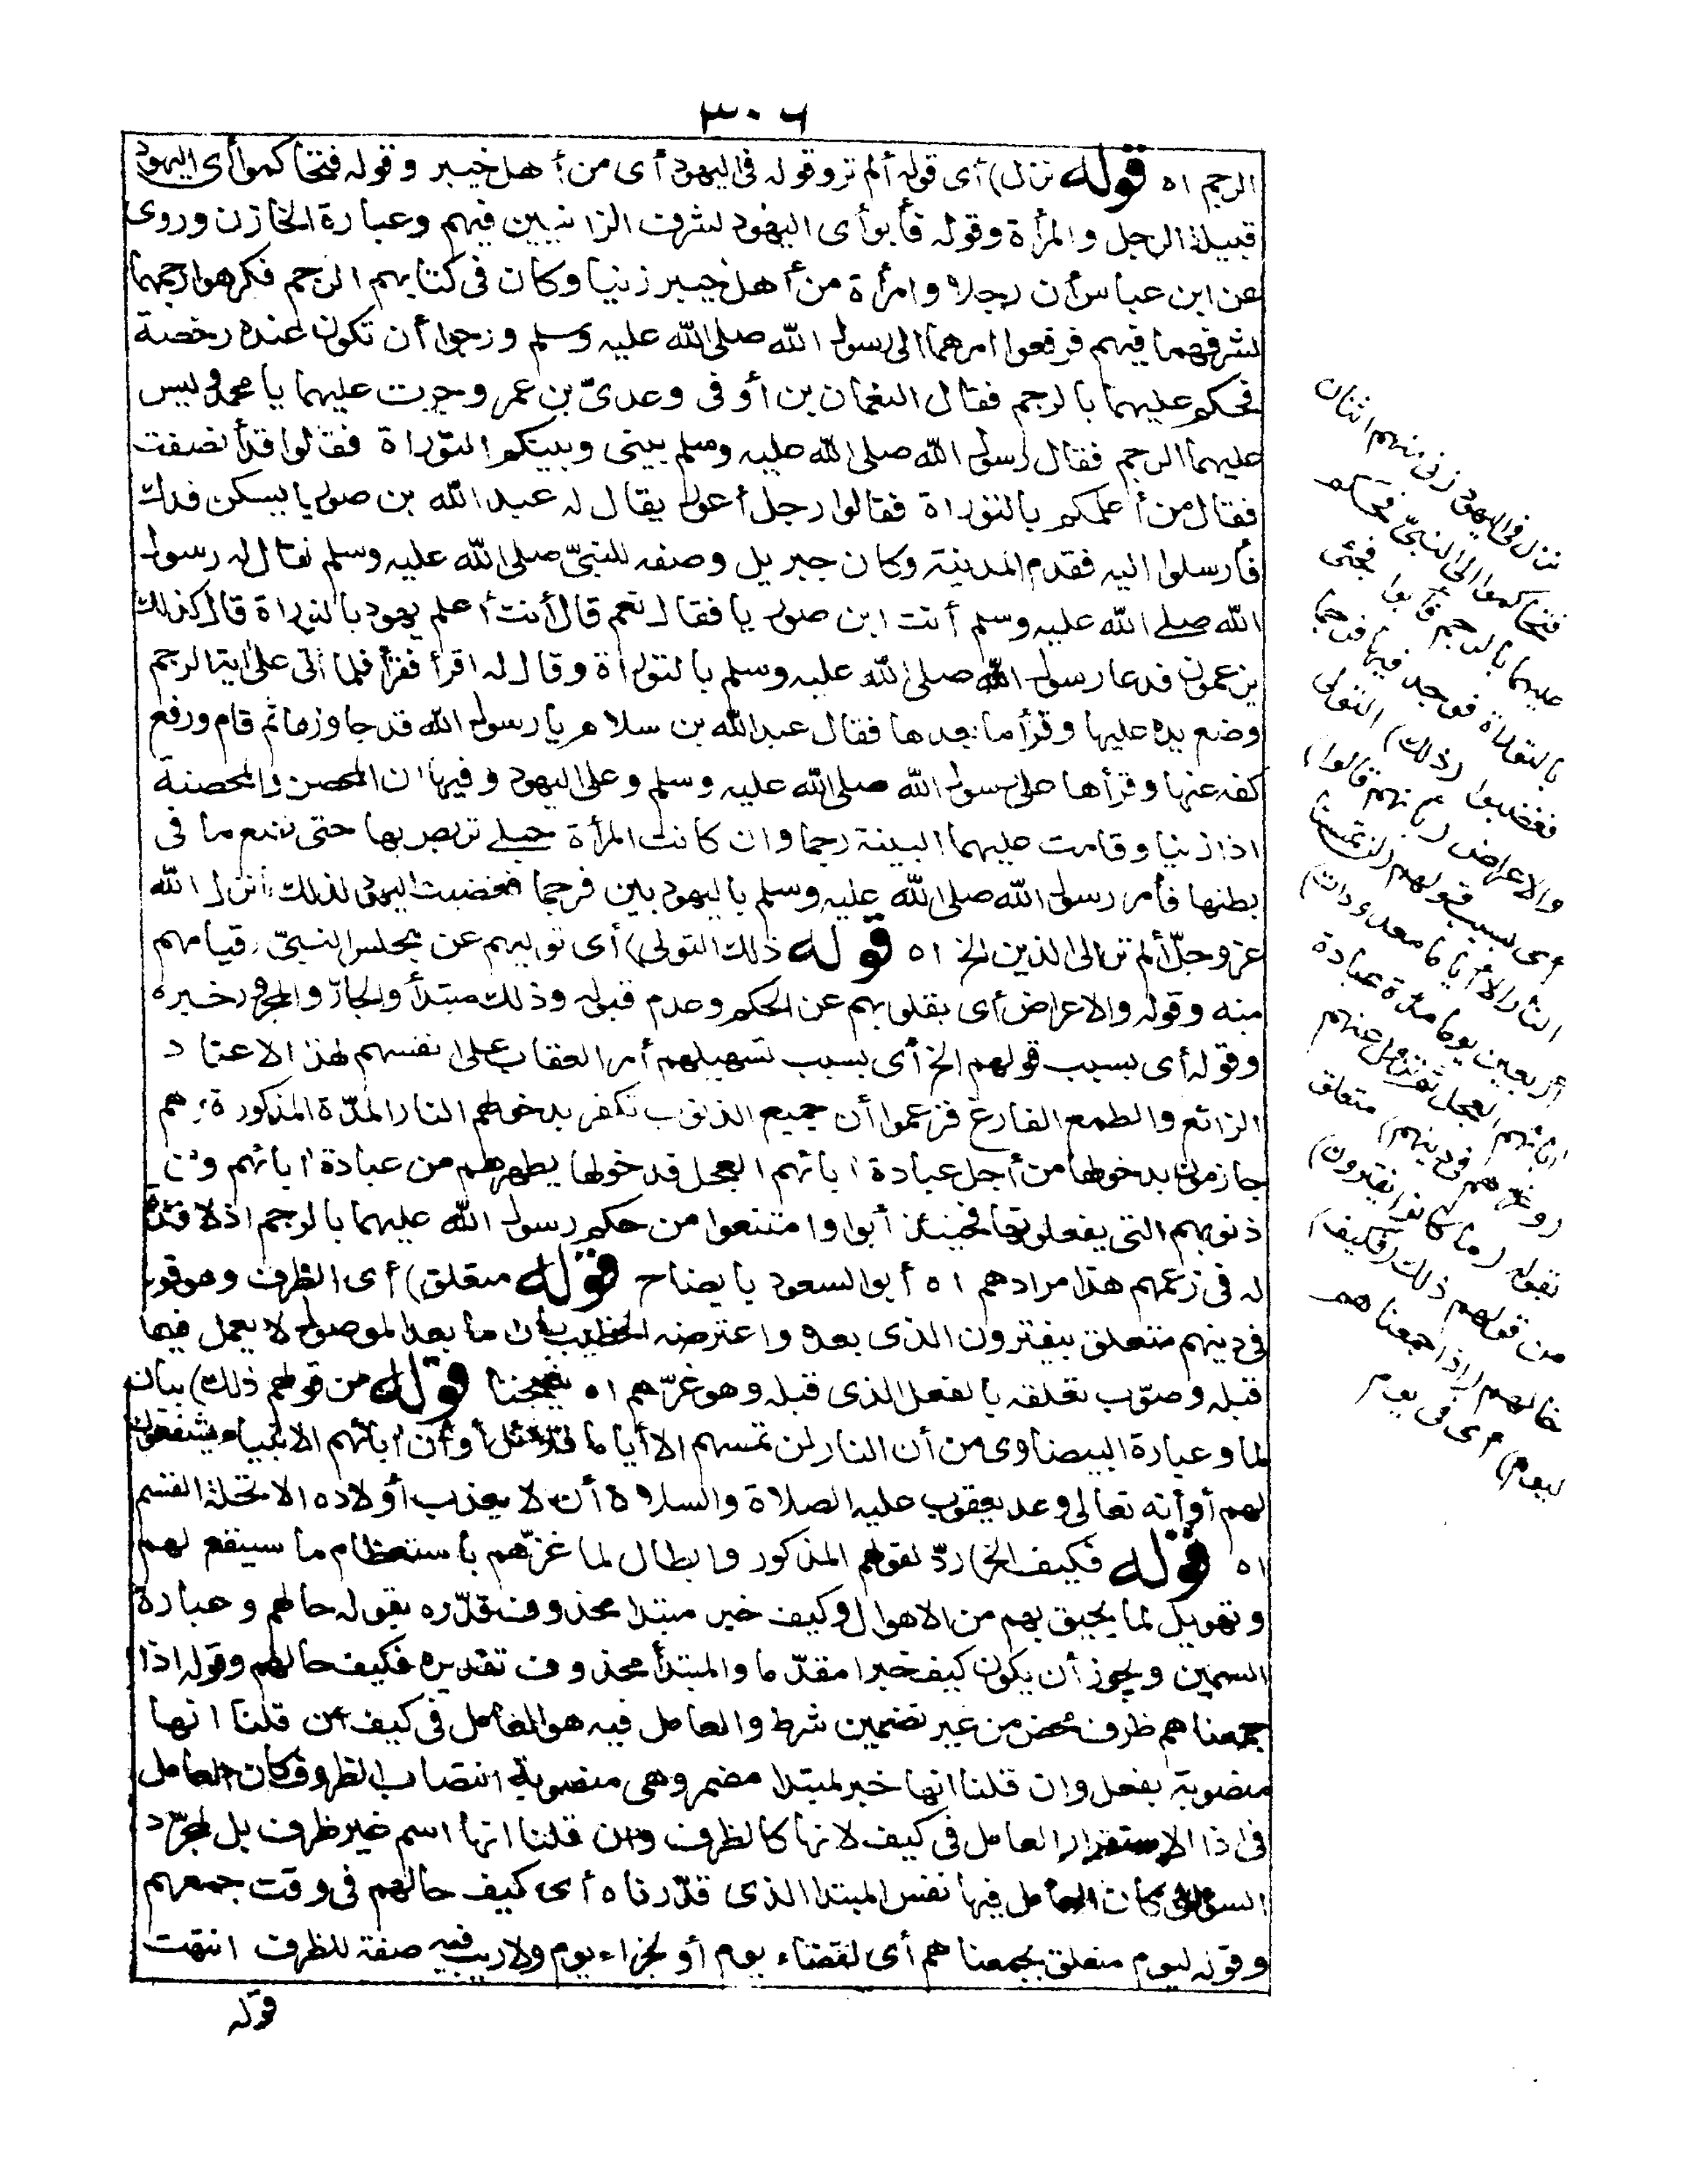 ٣٠٦
الرجم اه قوله نزل) أى قوله ألم تر وقوله فى اليهود أى من أهل خيبر وقوله فتحاكموا أى اليهود
قبيلة الرجل والمرأة وقوله فأبوا أى اليهود لشرف الزانيين فيهم وعبارة الخازن وروى
عن ابن عباس أن رجلا وامرأة من أهل خيبر زنيا وكان فى كتابهم الرجم فكرهوا رجمهما
لشرفهما فيهم فرفعوا امرهما الى رسول الله صلى الله عليه وسلم ورجوا أن تكون عنده رخصة
فحكم عليهما بالرجم فقال النعمان بن أوفى وعدىّ بن عمرو جرت عليهما يا محمد وليس
عليهما الرجم فقال رسول الله صلى الله عليه وسلم بينى وبينكم التوراة فقالوا قد أنصفت
فقال من أعلمكم بالتوراة فقالوا رجل أعور يقال له عبد الله بن صوريا يسكن فدك
فأرسلوا اليه فقدم المدينة وكان جبريل وصفه للنبىّ صلى الله عليه وسلم فقال له رسول
الله صلى الله عليه وسلم أنت ابن صوريا فقال نعم قال أنت أعلم يهود بالتوراة قال كذلك
يزعمون فدعا رسول الله صلى الله عليه وسلم بالتوراة وقال له اقرأ فقرأ فلما أتى على اية الرجم
وضع يده عليها وقرأ ما بعدها فقال عبد الله بن سلام يا رسول الله قد جاوزها ثم قام ورفع
كفه عنها وقرأها على رسول الله صلى الله عليه وسلم وعلى اليهود وفيها ان المحصن والمحصنة
اذا زنيا وقامت عليهما البينة رجما وان كانت المرأة حبلى تربص بها حتى تضع ما فى
بطنها فأمر رسول الله صلى الله عليه وسلم باليهوديين فرجما فغضبت اليهود لذلك فأنزل الله
عز وجلّ ألم تر الى الذين الخ اه قوله ذلك التولى) أى توليهم عن مجلس النبىّ وقيامهم
منه وقوله والاعراض أى بقلوبهم عن الحكم وعدم قبوله وذلك مبتدأ والجارّ والمجرور خبره
وقوله أى بسبب قولهم الخ أى بسبب تسهيلهم أمر العقاب على انفسهم لهذا الاعتقاد
الزائغ والطمع الفارغ فزعموا أن جميع الذنوب تكفر بدخولهم النار المدّة المذكورة وهم
جازمون بدخولها من أجل عبادة ابائهم العجل فدخولها يطهرهم من عبادة ابائهم ومن
ذنوبهم التى يفعلونها فحينئذ أبوا وامتنعوا من حكم رسول الله عليهما بالرجم اذ لا فائدة
له فى زعمهم هذا مرادهم اه أبو السعود بايضاح قوله متعلق) أى الظرف وهو قوله
فى دينهم متعلق بيفترون الذى بعده واعترضه الخطيب بأن ما بعد الموصول لا يعمل فيما
قبله وصوّب تعلقه بالفعل الذى قبله وهو غرّهم اه شيخنا قوله من قولهم ذلك) بيان
لما وعبارة البيضاوى من أن النار لن تمسهم الا أياما قلائل أو أن ابائهم الانبياء يشفعون
لهم أو أنه تعالى وعد يعقوب عليه الصلاة والسلام أن لا يعذب أولاده الا تحلة القسم
اه قوله فكيف الخ) ردّ لقولهم المذكور وابطال لما غرّهم باستعظام ما سيقع لهم
وتهويل لما يحيق بهم من الاهوال وكيف خبر مبتدا محذوف قدّره بقوله حالهم وعبارة
السمين ويجوز أن يكون كيف خبرا مقدّما والمبتدأ محذوف تقديره فكيف حالهم وقوله اذا
جمعناهم ظرف محض من غير تضمين شرط والعامل فيه هو العامل فى كيف ان قلنا انها
منصوبة بفعل وان قلنا انها خبر لمبتدا مضمر وهى منصوبة انتصاب الظروف كان العامل
فى اذا الاستقرار العامل فى كيف لانها كالظرف وان قلنا انها اسم غير ظرف بل لمجرّد
السؤال كان العامل فيها نفس المبتدا الذى قدّرناه أى كيف حالهم فى وقت جمعهم
وقوله ليوم متعلق بجمعناهم أى لقضاء يوم أو لجزاء يوم ولا ريب فيه صفة للظرف انتهت
قوله
نزل فى اليهود زنى منهم اثنان
فتحاكموا الى النبىّ فحكم
عليهما بالرجم فأبوا فجئ
بالتوراة فوجد فيها فرجما
فغضبوا (ذلك) التولى
والاعراض (بأنهم قالوا)
أى بسبب قولهم (لن تمسنا
النار الا أياما معدودات)
أربعين يوما مدّة عبادة
ابائهم العجل ثم تزول عنهم
(وغرّهم فى دينهم) متعلق
بقوله (ما كانوا يفترون)
من قولهم ذلك (فكيف)
حالهم (اذا جمعناهم
ليوم) أى فى يوم